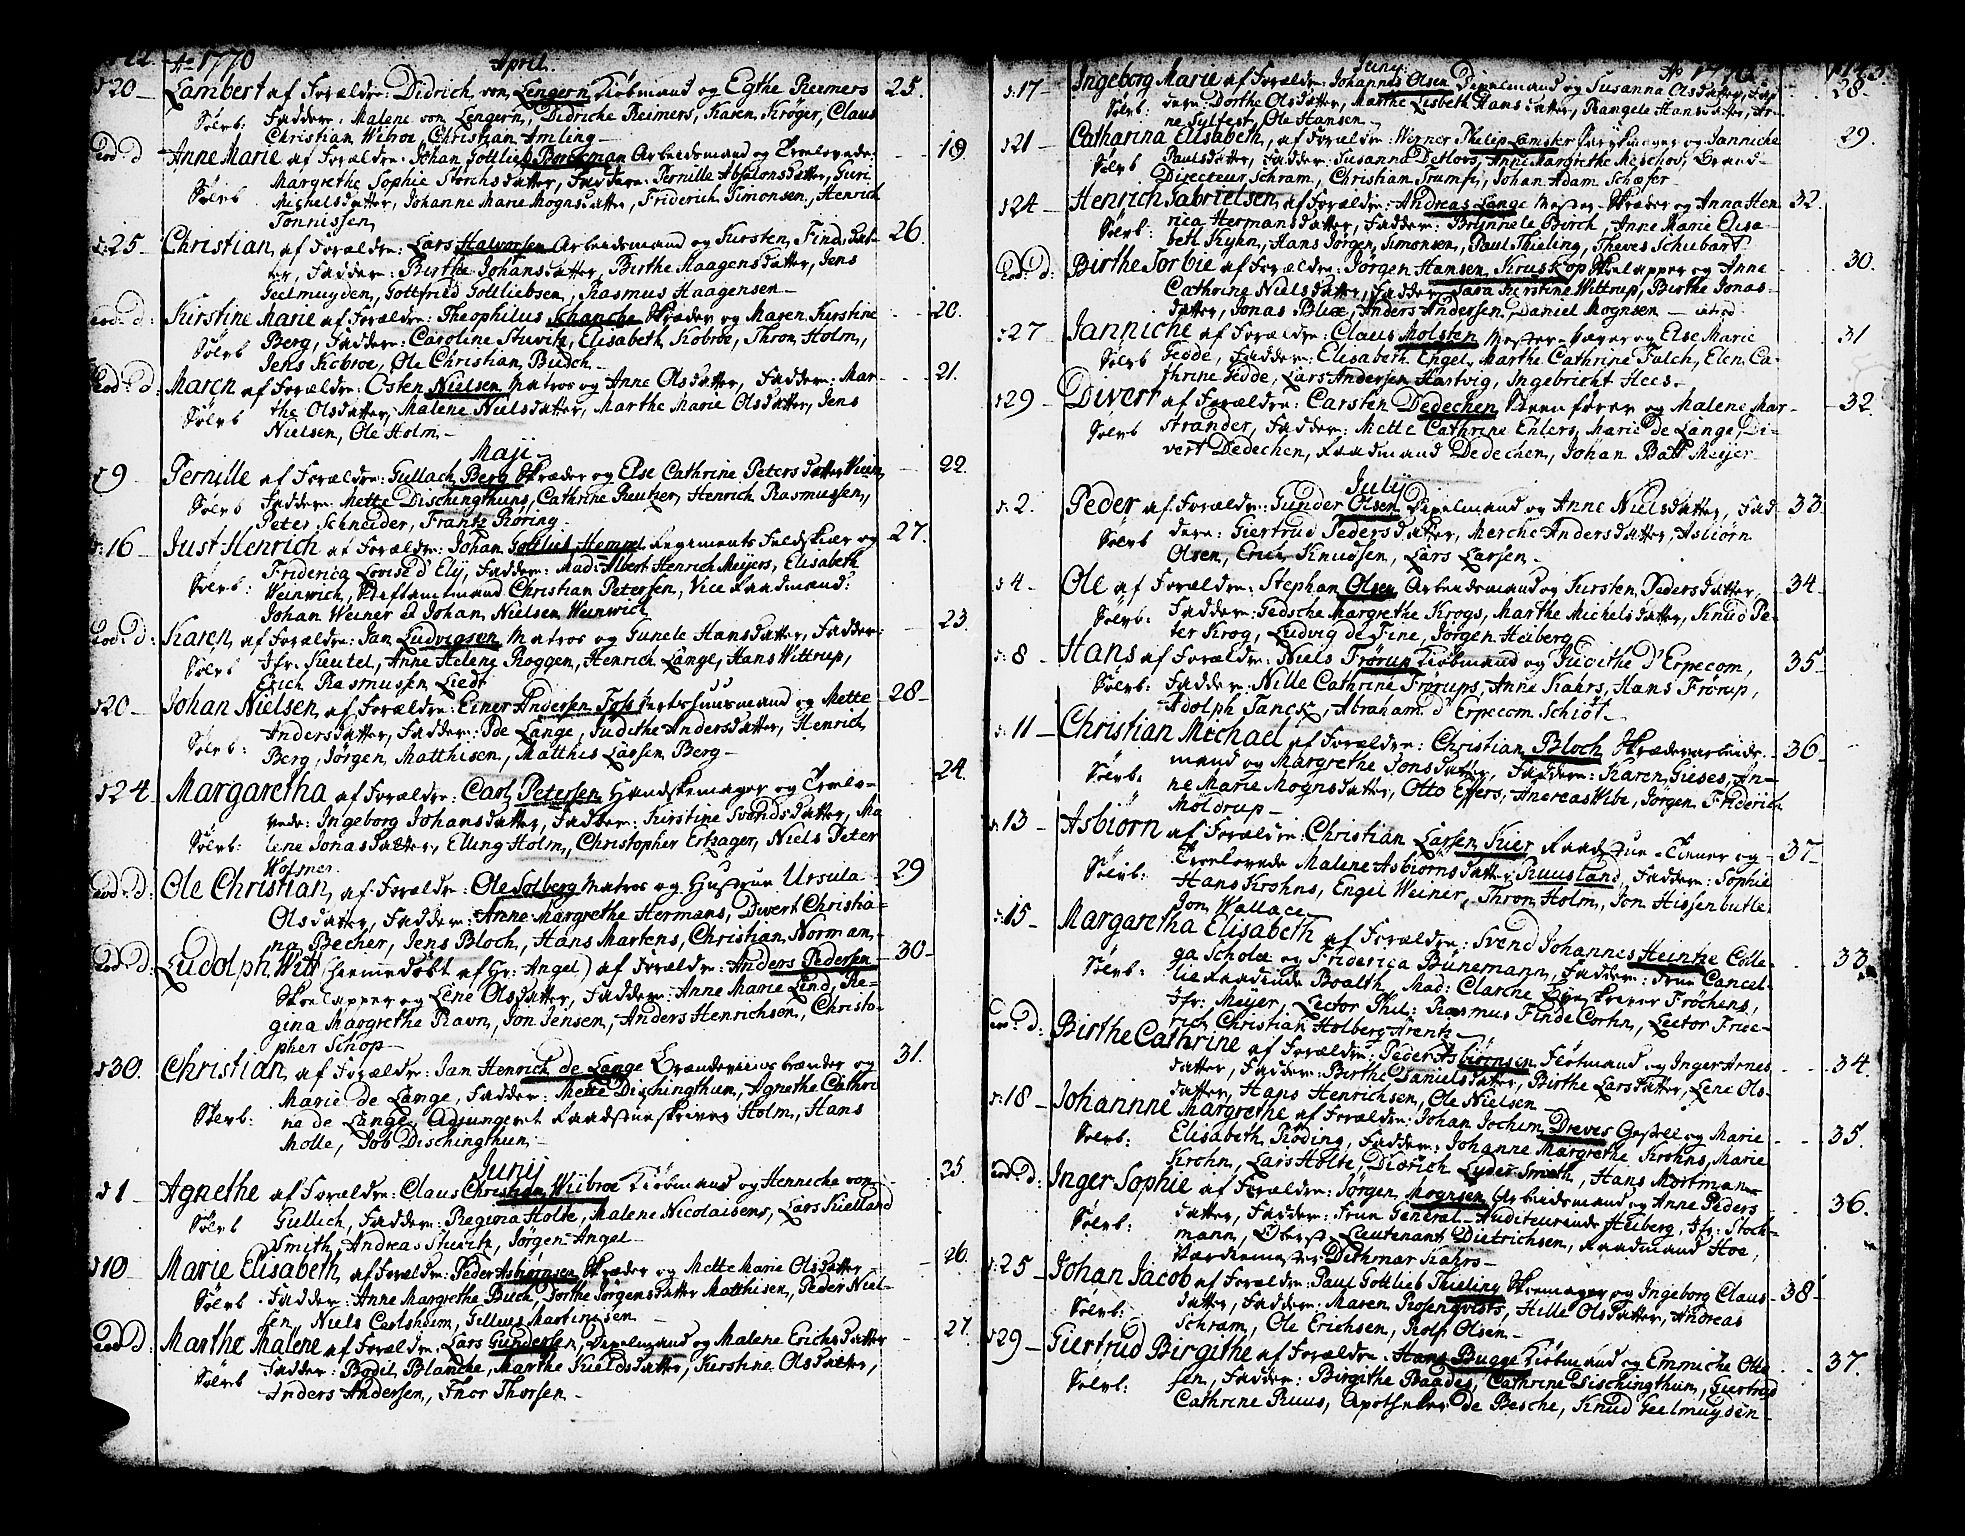 Ao 1770 April.
d 20 - Lambert af Forældre: Didrich von Lengern Kiøbmand og Egthe Reimers 25.
Sølvb: Faddere: Malene von Lengern, Didriche Reimers, Karen Krøger, Claus
Christian Wibroe, Christian Amling -
Eod: d Anne Marie af Forældre: Johan Gottlieb Borckman Arbeidsmand og Trolovede: 19
Margrethe Sophie Storchsdatter, Faddere: Pernille Absalonsdatter, Guri
Sølvb Michelsdatter, Johanne Marie Mognsdatter, Friderich Simonsen, Henrich
Tonnissen
d: 25 Christian af Forældre: Lars Halvorsen Arbeidsmand og Kirsten Findsdat- 26.
ter, Faddere: Birthe Johansdatter, Birthe Haagensdatter, Jens
Geelmuyden, Gottfried Gottliebsen, Rasmus Haagensen -
Eod: d: Kirstine Marie af Forældre: Theophilus Schanche Skræder og Maren Kirstine 20.
Sølvb Berg, Faddere: Caroline Stuvitz, Elisabeth Kobroe, Thron Holm,
Jens Kobroe, Ole Christian Budch -
Eod: d: Maren af Forældre: Osten Nielsen Matros og Anne Olsdatter, Faddere: Mar- 21.
Sølvb the Olsdatter, Malene Nielsdatter, Marthe Marie Olsdatter, Jens
Nielsen, Ole Holm -
Maji -
d 9 Pernille af Forældre: Gullach Berg Skræder og Else Cathrine Petersdatter 22
Sølvb Faddere: Mette Dischingthuns, Cathrine Reutzer, Henrich Rasmussen,
Peter Schneider, Frantz Røring -
d: 16 Just Henrich af Forældre: Johan Gottlieb Hempel Regiments Feldskiær og 27.
Friderica Lovise d'Ely, Faddere: Mad: Albert Henrich Meijers, Elisabeth
Sølvb: Weinwich, Stiftamtmand Christian Petersen, Vice Raadmand:
Johan Weiner et Johan Nielsen Weinwich
Eod: d: Karen af Forældre: Jan Ludvigsen Matros og Gunele Hansdatter, Faddere: 23.
Sølvb Jfr: Keutel, Anne Helene Roggen, Henrich Lange, Hans Wittrup,
Erich Rasmussen Lied
d 20 - Johan Nielsen af Forældre: Einer Andersen og Mette 28 -
Andersdatter, Faddere: Lange, Judithe Andersdatter, Henrich
Sølvb: Berg, Jørgen Matthisen, Matthis Larsen Berg -
d 24 Margaretha af Forældre: Carl Petersen Handskemager og Trolo- 24.
vede: Ingeborg Johansdatter, Faddere: Kirstine Svendsdatter, Ma
Sølvb: lene Jonasdatter, Ellung Holm, Christopher Erhager, Niels Peter
Holmer
Eod: d: Ole Christian af Forældre: Ole Solberg Matros og Hustrue Ursula 29
Olsdatter, Faddere: Anne Margrethe Hermans, Divert Christia-
na Becher, Jens Bloch, Hans Martens, Christian Norman,
Eod: d: Ludolph Witt (hiemmedøbt af Hr: Angel) af Forældre: Anders Pedersen 30 -
Skoelapper og Lene Olsdatter, Faddere: Anne Marie Lind, Re-
gina Margrethe Ravn, Jon Jensen, Anders Henrichsen, Christo-
pher Schop -
d 30. Christian af Forældre: Jan Henrich de Lange Brændeviins brænder og 31.
Marie de Lange, Faddere: Mette Dischingthun, Agnethe Cathri
Sølvb: ne de Lange, Adjungeret Raadstueskriver Holm, Hans
Molle, Job Dischingthun -
Junij
d 1 Agnethe af Forældre: Claus Christian Wiibroe Kiøbmand og Henniche von 25.
Sølvb Gullich, Faddere: Regina Holte, Malene Nicolaisens, Lars Kielland
Smith, Andreas Stuvitz, Jørgen Angel -
d 10 Marie Elisabeth af Forældre: Peder Asbiørnsen Skræder og Mette Marie Olsdatter 26.
Sølvb Faddere: Anne Margrethe Buch, Dorthe Jørgensdatter Matthisen, Peder Niel-
sen, Niels Carlsheim, Gillius Martinussen
Eod: D: Marthe Malene af Forældre: Lars Gundersen, Dragmand og Malene Erichsdatter 27.
Sølvb Faddere: Bodil Blanche, Marthe Kieldsdatter, Kirstine Olsdatter,
Anders Andersen, Thor Thorsen -
Juny Ao 1770.
d: 17 - Ingeborg Marie af Forældre: Johannes Olsen og Susanna Olsdatter, Fad 28 -
Sølvb: dere: Dorthe Olsdatter, Marthe Lisbeth Hansdatter, Rangele Hansdatter, Ar-
ne Sylfest, Ole Hansen -
d 21 Catharina Elisabeth af Forældre: Werner Philip Parykmager og Janniche 29.
Sølvb Paulsdatter, Faddere: Susanna Detlovs, Anne Margrethe Meschou, Brand-
Directeur Schram, Christian Trumpi, Johan Adam Schæfer -
d 24 - Henrich Gabrielsen af Forældre: Andreas Lange Mester-Skræder og Anna Hen 32.
Sølvb: rica Hermansdatter, Faddere: Brynnele Birch, Anne Marie Elisa-
beth Kyhn, Hans Jørgen Simonsen, Paul Thieling, Theves Schubart
Eod: d: Birthe Sorbie af Forældre: Jørgen Hansen Kruskop Skoelapper og Anne 30.
Cathrine Nielsdatter, Faddere: Sara Kirstine Wittrup, Birthe Jonas-
datter, Jonas Blix, Anders Andersen, Daniel Mognsen -
d: 27 Janniche af Forældre: Claus Molsten Mester-Væver og Else Marie 31
Sølvb Gedde, Faddere: Elisabeth Engel, Marthe Cathrine Falch, Elen Ca-
thrine Gedde, Lars Andersen Hartvig, Ingebricht Hees -
d 29 - Divert af Forældre: Carsten Dedechen og Malene Mar - 32.
Sølvb strander, Faddere: Mette Cathrine Ehlers, Marie de Lange, Di-
vert Dedechen, Raadmand Dedechen, Johan Batt Meijer
Julij
d: 2. Peder af Forældre: Gunder Olsen og Anne Nielsdatter, Fad - 33
Sølvb dere: Giertrud Pedersdatter, Merche Andersdatter, Asbiørn
Olsen, Erich Knudsen, Lars Larsen -
d 4 - Ole af Forældre: Stephan Olsen Arbeidsmand og Kirsten Pedersdatter, 34 -
Sølvb: Faddere: Gedsche Margrethe Krogs, Marthe Michelsdatter, Knud Pe-
ter Krog, Ludvig de Fine, Jørgen Heiberg
d: 8 - Hans af Forældre: Niels Frørup Kiøbmand og Judithe d'Erpecom, 35 -
Sølvb: Faddere: Nille Cathrine Frørups, Anne Kahrs, Hans Frørup,
Adolph Janck, Abraham d'Erpecom Schiøt -
d: 11 - Christian Michael af Forældre: Christian Bloch Skræderarbeids - 36 -
mand og Margrethe Jonsdatter, Faddere: Karen Gieses, An-
Sølvb: ne Marie Mognsdatter, Otto Effers, Andreas Wibe, Jørgen Friderich
Möldrup -
d: 13 - Asbiørn af Forældre: Christian Larsen Kier Raadstue-Tiener og - 37 -
Trolovede Malene Asbiørnsdatter Ruusland, Faddere: Sophie
Sølvb: Hans Krohns, Engel Weiner, Thron Holm, Jon Hissenbutle
Jon Wallace
d: 15 - Margaretha Elisabeth af Forældre: Svend Johannes Heintze Colle- 33
ga Scholæ og Friderica Bünemann, Faddere: Frue Cancel-
Sølvb: lieraadinde Boalth, Mad: Clarche Byeskriver Fröchens,
Jfr: Meijer, Lector Phil: Rasmus Finde Corhn, Lector Fride-
rich Christian Holberg Arentz -
Eod: d: Birthe Cathrine af Forældre: Peder Asbiørnsen Fløtmand og Inger Arnes 34.
datter, Faddere: Birthe Danielsdatter, Birthe Larsdatter, Lene Ols-
datter, Hans Henrichsen, Ole Nielsen -
d: 18 - Johannne Margrethe af Forældre: Johan Jochim Dreves Gesell og Marie - 35.
Sølvb: Elisabeth Röding, Faddere: Johanne Margrethe Krohns, Marie
Krohn, Lars Holte, Didrich Lyder Smith, Hans Mortman -
Eod: D: Inger Sophie af Forældre: Jørgen Mognsen Arbeidsmand og Anne Peders 36.
Sølvb: datter, Faddere: Frue General-Auditeurinde Heiberg, Jfr: Stock-
mann, Oberst Lieutenant Dietrichsen, Raadmand Hoe,
Værdiemester Dithmar Kahrs -
d: 25 - Johan Jacob af Forældre: Paul Gottlieb Thieling Skoemager og Ingeborg Claus - 38 -
Sølvb: datter, Faddere: Maren Rosenqvists, Hille Olsdatter, Andreas
Schram, Ole Erichsen, Rolf Olsen -
d 29 - Giertrud Birgithe af Forældre: Hans Bugge Kiøbmand og Emmiche Otte 37.
Sølvb: sen, Faddere: Birgithe Baades, Cathrine Dischingthun, Giertrud
Cathrine Ruus, Apotheker de Besche, Knud Geelmuyden -